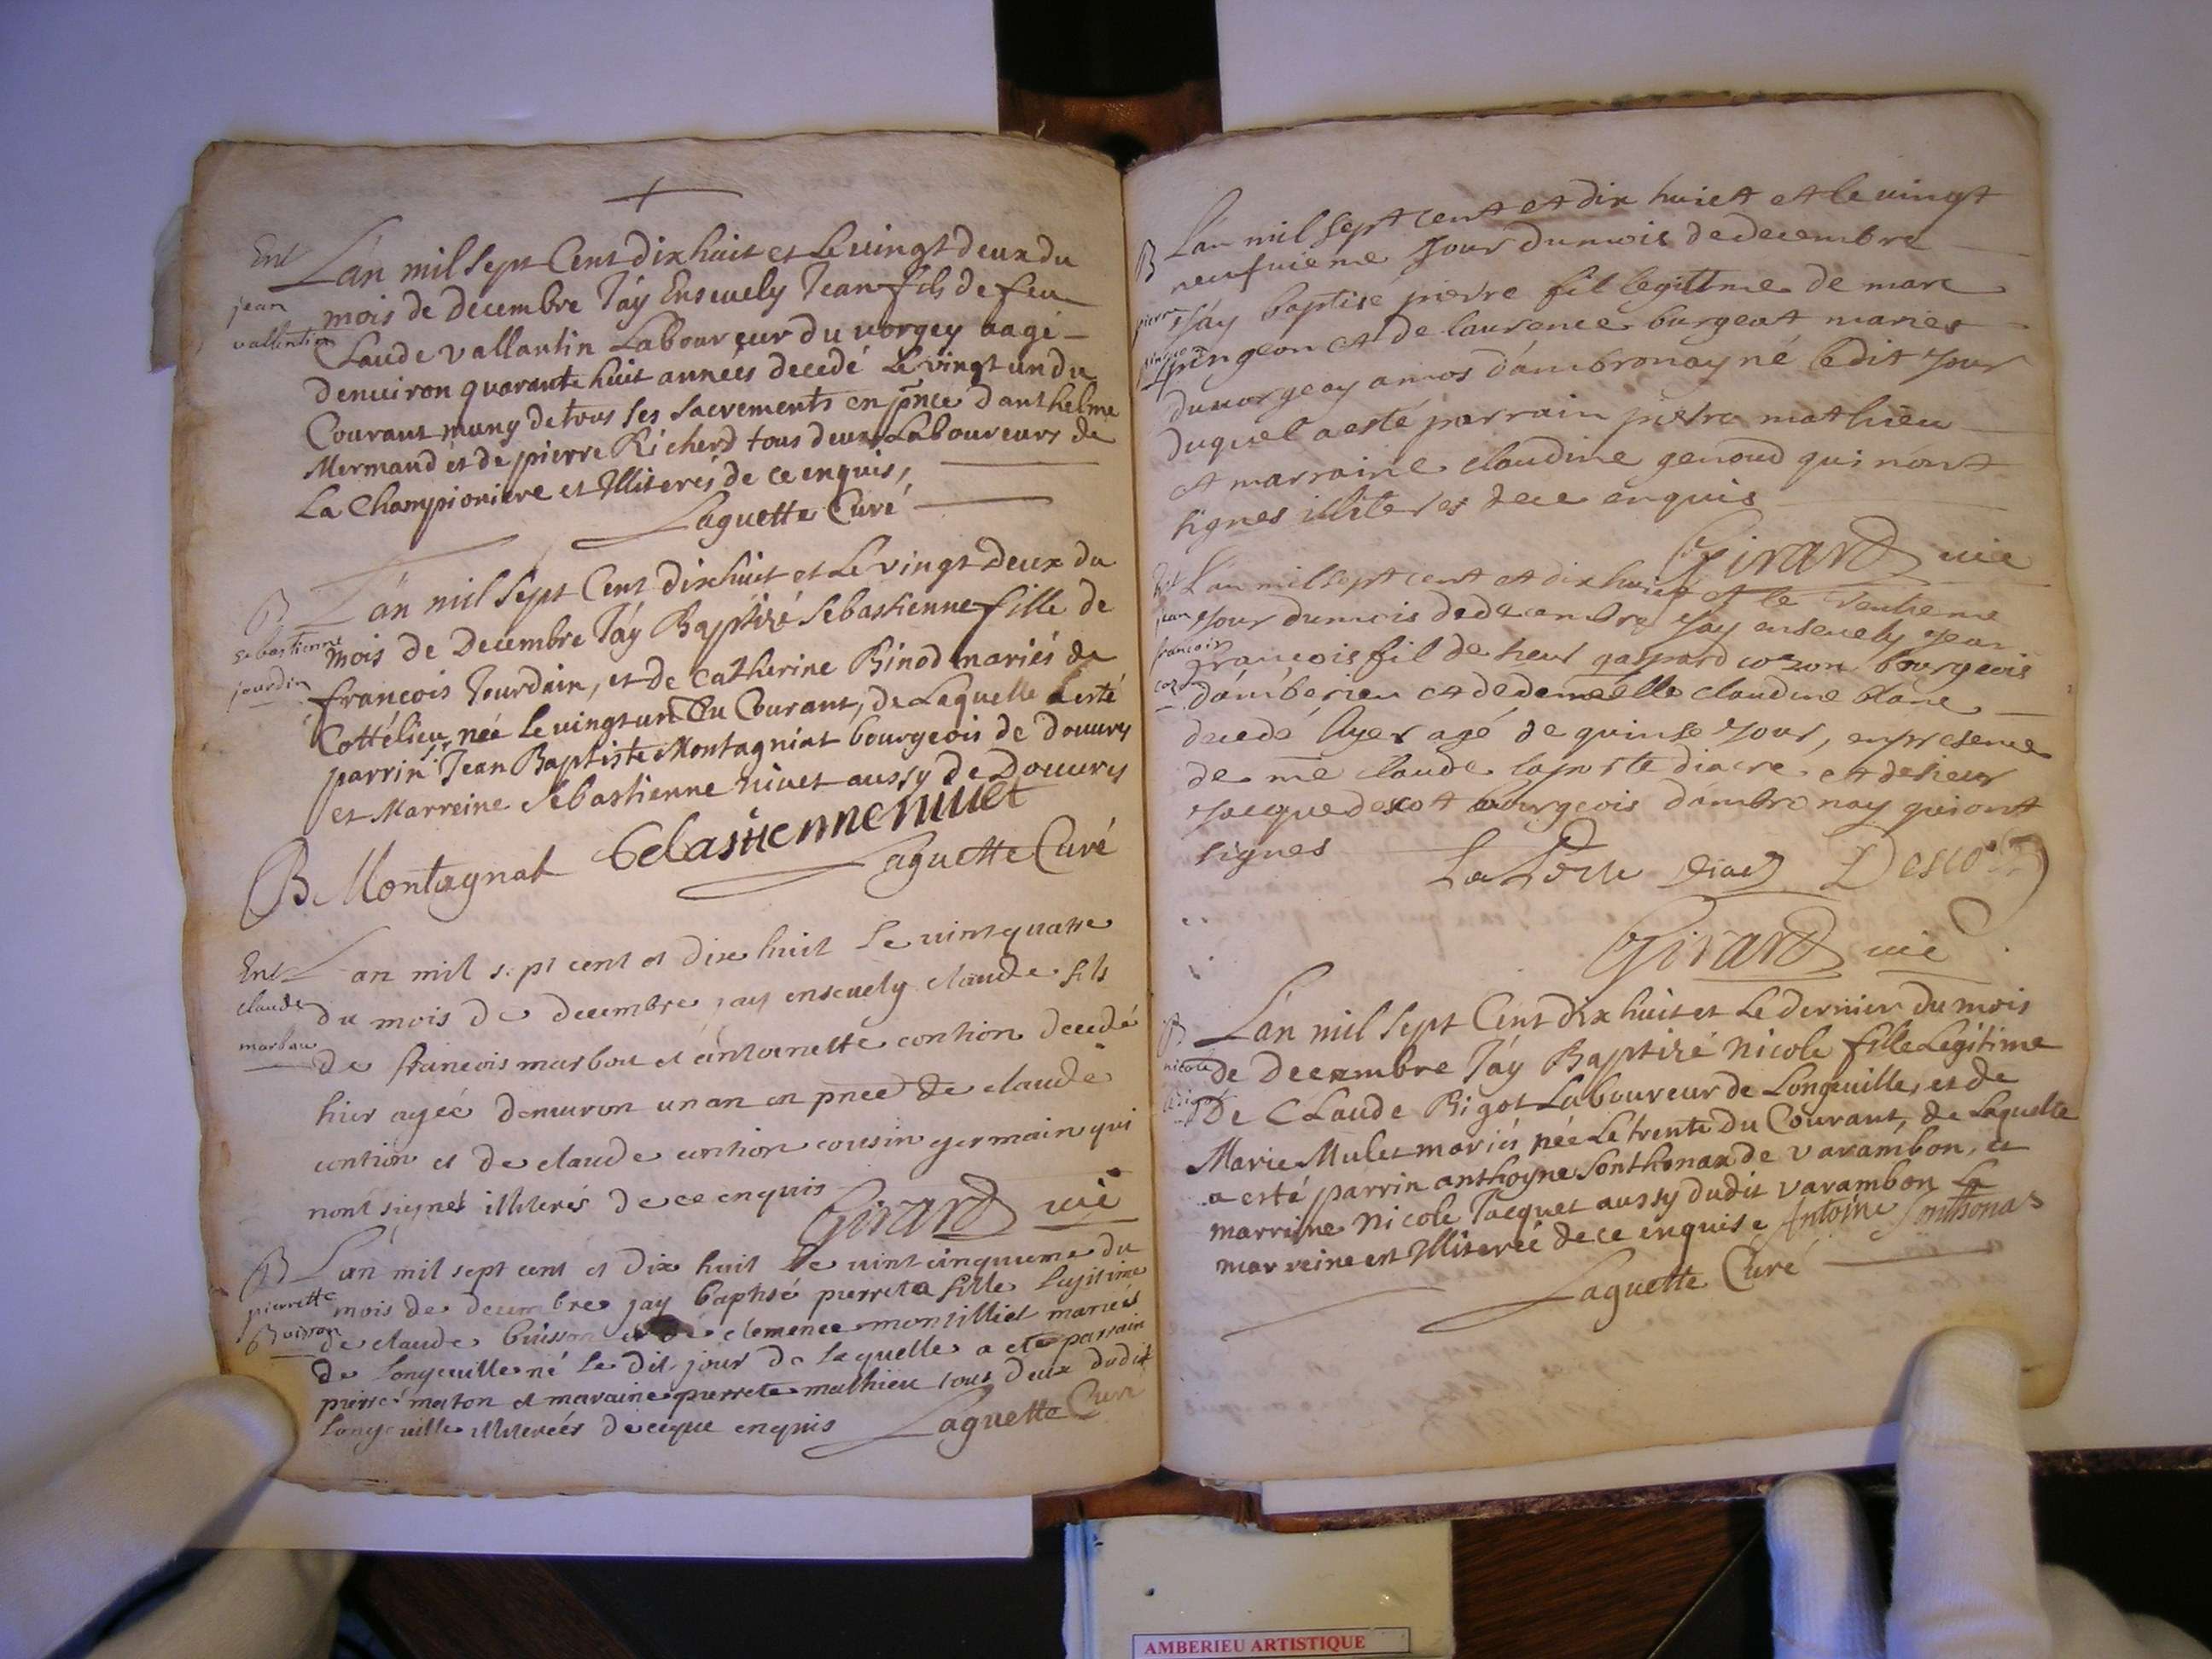 Ent
jean
vallentin
L'an mil Sept Cent dix huit et Le vingt deux du
mois de decembre J'ay Ensevely Jean fils de feu
Claude vallantin Laboureur du vorgey aagé
d'enuiron quarante huit années decedé Le vingt un du
Courant muny de tous ses sacrements en pnce d'anthelme
Mermand et de pierre Richerd tous deux Laboureurs de
La Championiere et Illiterés de ce enquis,
Laguette Curé
B
Sebastienne
jourdin
L'an mil Sept Cent dix huit et Le vingt Deux du
mois de Decembre J'ay Baptizé Sebastienne fille de
francois Jourdain, et de Catherine Binod mariés de
Cottélieu née Le vingt un Du Courant, de Laquelle a esté
parrin Jean Baptiste Montagniat bourgeois de douurs
et Marreine Sebastienne niuet aussy de Douures
B Montagnat Sebastienne niuet
Laguette Curé
Ent
claude
marbou
L'an mil sept cent et dix huit le vint quatre
du mois de decembre jay enseuely claude fils
de francois marbou et antoinette contion decedé
hier agée denuiron un an en pnce de claude
contion et de claude contion cousin germain qui
nont signés illiterés de ce enquis
Girard uic
B
pierrette
Buisson
L'an mil sept cent et dix huit le vint cinquieme du
mois de decembre jay baptisé pierreta fille legitime
de claude buisson et de clemence montilliet mariés
de longeuille né le dit jour de laquelle a ete parrain
pierre maton et maraine pierrete mathieu tous deux dudit
longeuille illiterées de ceque enquis Laguette Curé
B
pierre
pingeon
L'an mil sept cent et dix huict et le vingt
neufuieme jour du mois de decembre
j'ay baptisé pierre fil legittme de marc
pingeon et de laurence burgeat maries
du uorgeay amos d'ambronay né ledit jour
duquel a esté parrain pierre mathieu
et marraine claudine genoud qui nont
signes illiteres de ce enquis
Girard uic
Ent
jean
francois
cozon
L'an mil sept cent et dix huict et le trentieme
jour du mois de decembre jay enseuely jean
francois fil de sieur gaspard cozon bourgeois
d'amberieu et de demoiselle claudine blanc
decedé hyer agé de quinse jour, en presence
de me claude laporte diacre et de sieur
jacque descot bourgeois d'ambronay qui ont
signes
La Porte diacre Descot
Girard uic
B
nicole
Bigot
L'an mil Sept Cent dix huit et Le dernier du mois
de Decembre J'ay Baptizé Nicole fille Legitime
De Claude Bigot Laboureur de Longeuille, et de
Marie Mulet mariés née Le trente du Courant, de Laquelle
a esté parrin anthoyne Sonthonax de Varambon, et
marreine Nicole Jacquet aussy dudit varambon La
marreine est Illiterée de ce enquise Antoine Sonthonas
Laguette Curé
AMBERIEU ARTISTIQUE